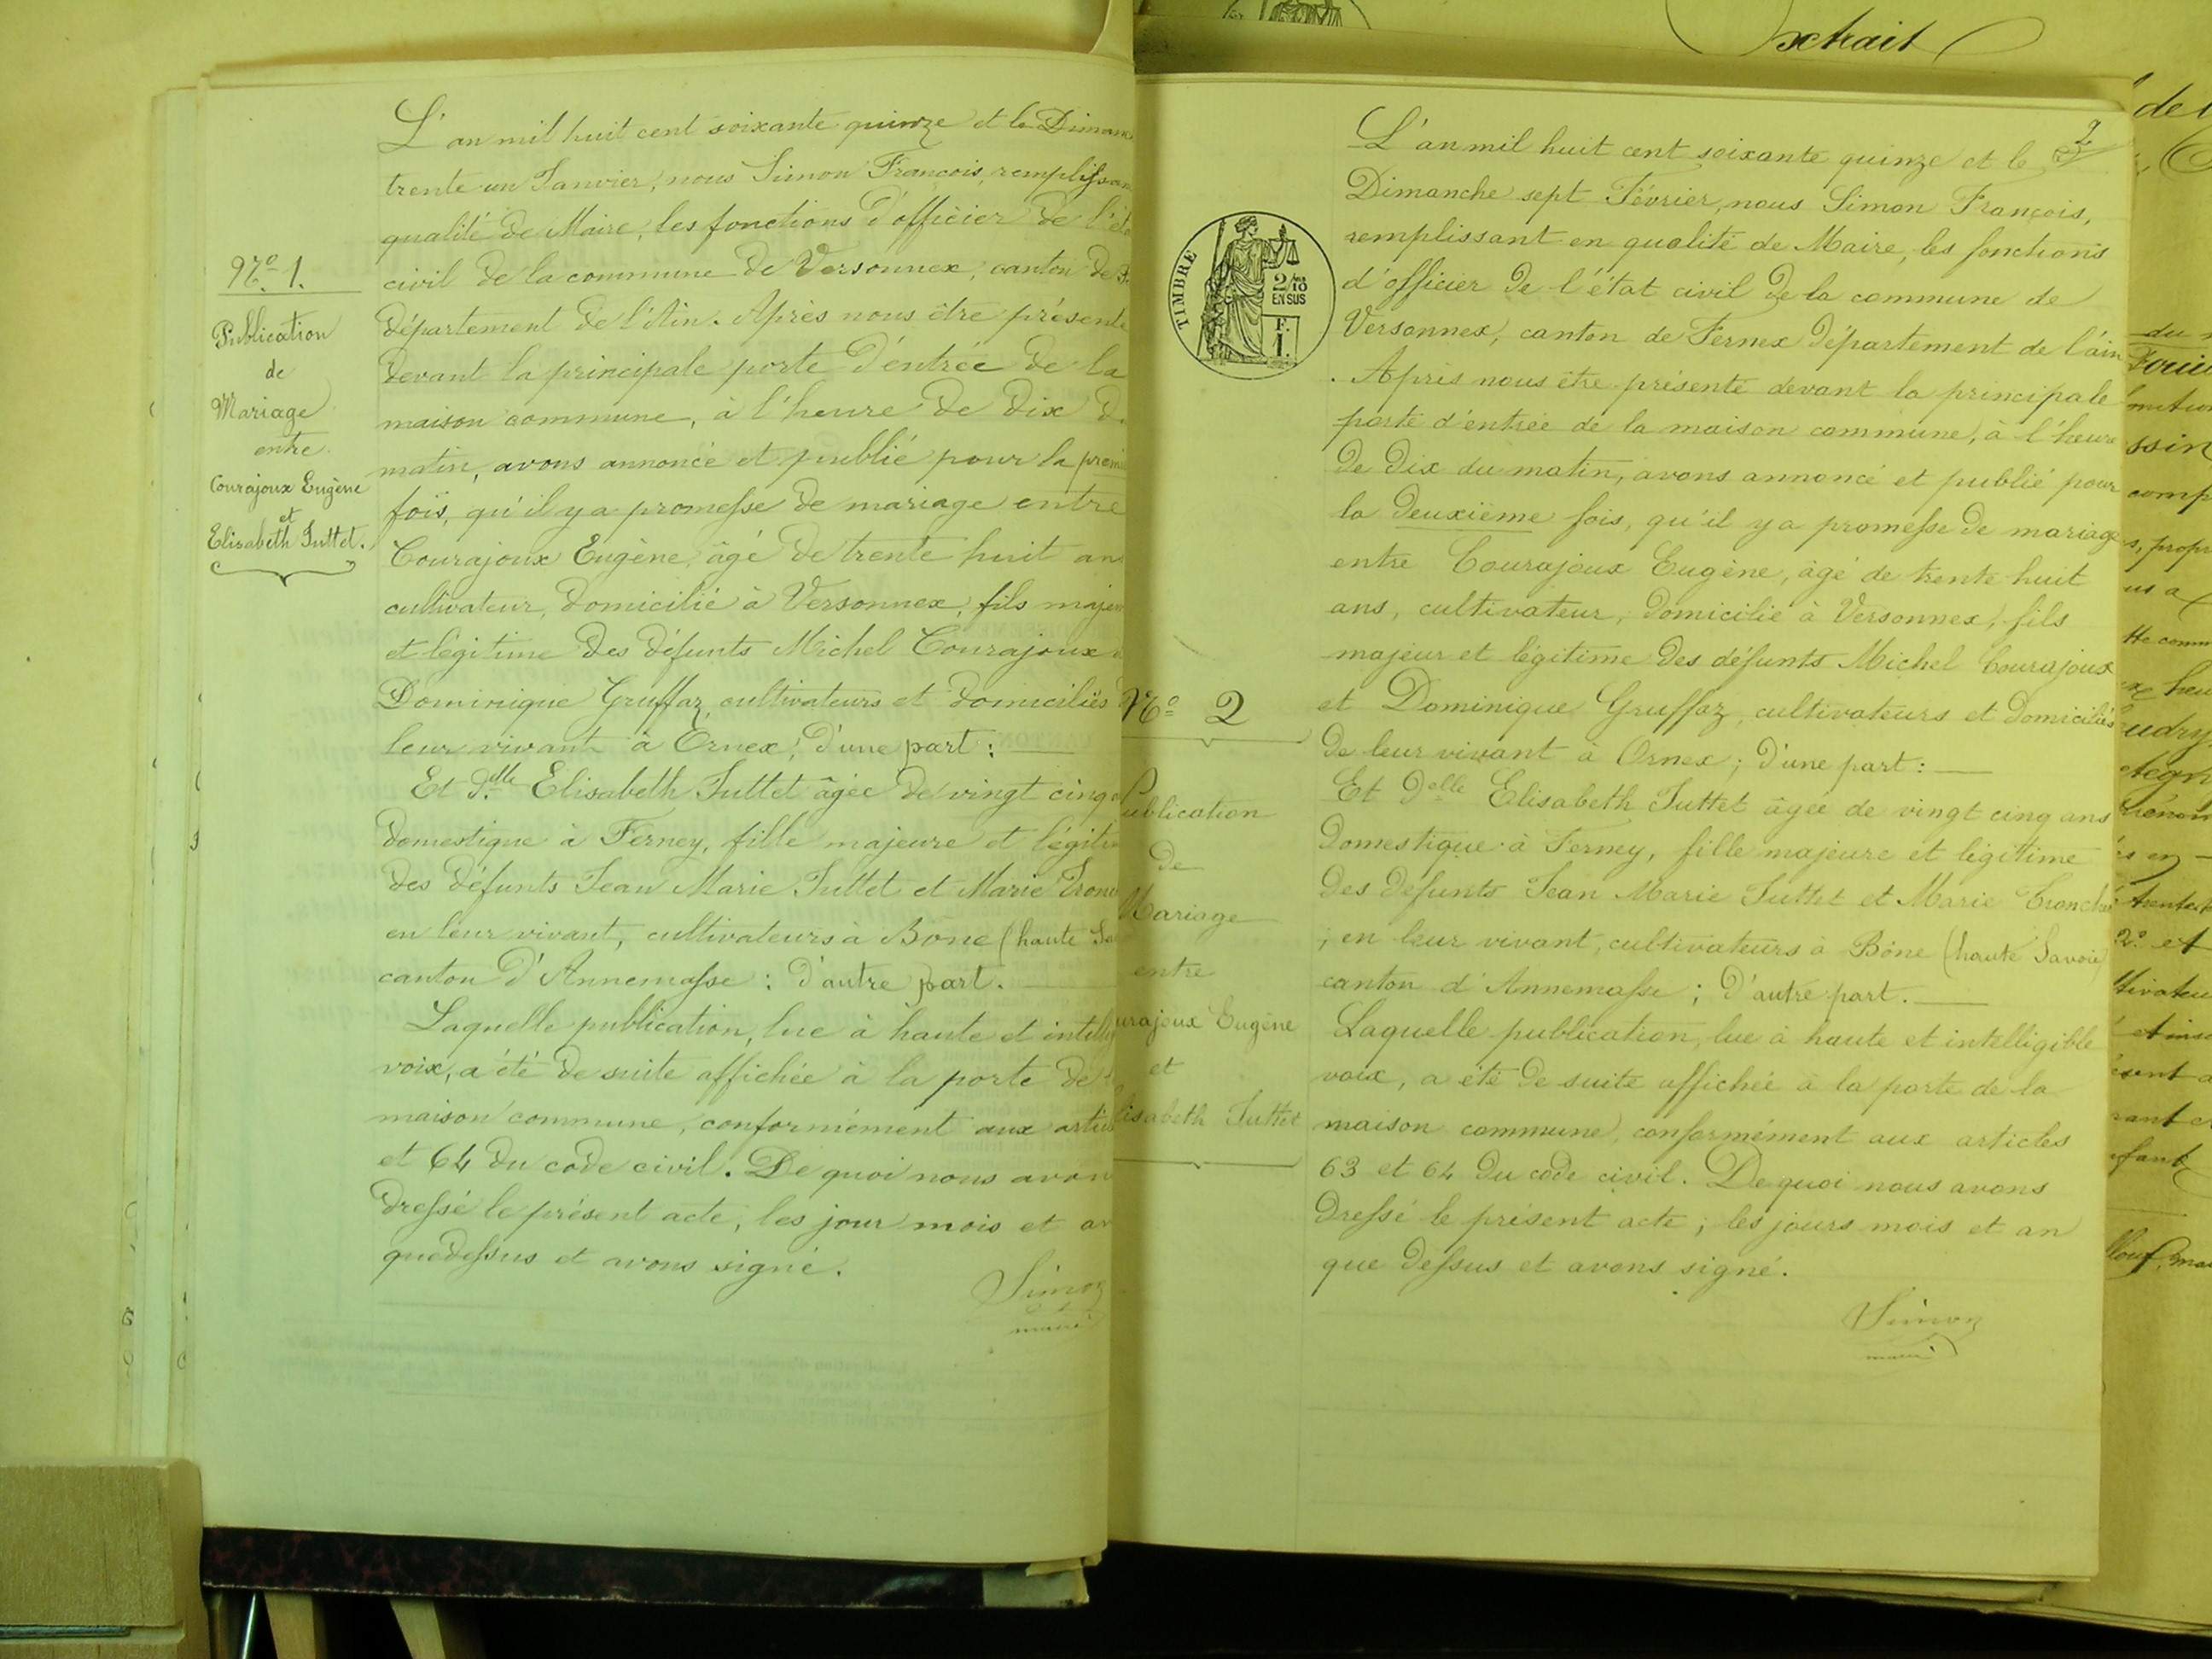 N° 1.
Publication
de
Mariage
entre
Courajoux Eugène
et
Elisabeth Juttet.
L'an mil huit cent soixante quinze et le Diman
trente un Janvier, nous Simon François, remplissan
qualité de Maire, les fonctions d'officier de l'ét
civil de la commune de Versonnex, canton de F
département de l'Ain. Après nous être présenté
devant la principale porte d'entrée de la
maison commune, à l'heure de dix d
matin, avons annoncé et publié pour la premi
fois, qu'il y a promesse de mariage entre
Courajoux Eugène, âgé de trente huit an
cultivateur, domicilié à Versonnex, fils majeu
et légitime des défunts Michel Courajoux
Dominique Gruffaz, cultivateurs et domiciliés
leur vivant à Ornex; d'une part:
Et D.elle Elisabeth Juttet âgée de vingt cinq
domestique à Ferney, fille majeure et légiti
des défunts Jean Marie Juttet et Marie Tronc
en leur vivant, cultivateurs à Bône (haute Sa
canton d'Annemasse: d'autre part.
Laquelle publication, lue à haute et intellig
voix, a été de suite affichée à la porte de
maison commune, conformément aux artic
et 64 du code civil. De quoi nous avon
dressé le présent acte, les jour mois et an
que dessus et avons signé.
Simon
maire
Extrait
2
TIMBRE
2/10
EN SUS
F.
1.
N° 2
ublication
de
Mariage
entre
urajoux Eugène
et
lisabeth Juttet
L'an mil huit cent soixante quinze et le
Dimanche sept Février, nous Simon François,
remplissant en qualité de Maire, les fonctions
d'officier de l'état civil de la commune de
Versonnex, canton de Fernex département de l'ain
. Après nous être présenté devant la principale
porte d'entrée de la maison commune, à l'heure
de dix du matin, avons annoncé et publié pour
la deuxième fois, qu'il y a promesse de mariage
entre Courajoux Eugène, âgé de trente huit
ans, cultivateur, domicilié à Versonnex, fils
majeur et légitime des défunts Michel Courajoux
et Dominique Gruffaz, cultivateurs et domiciliés
de leur vivant à Ornex; d'une part:
Et Delle Elisabeth Juttet âgée de vingt cinq ans
domestique à Ferney, fille majeure et légitime
des défunts Jean Marie Juttet et Marie Tronch
; en leur vivant, cultivateurs à Bône (haute Savoie)
canton d'Annemasse; d'autre part.
Laquelle publication, lue à haute et intelligible
voix, a été de suite affichée à la porte de la
maison commune, conformément aux articles
63 et 64 du code civil. De quoi nous avons
dressé le présent acte; les jours mois et an
que dessus et avons signé.
Simon
maire